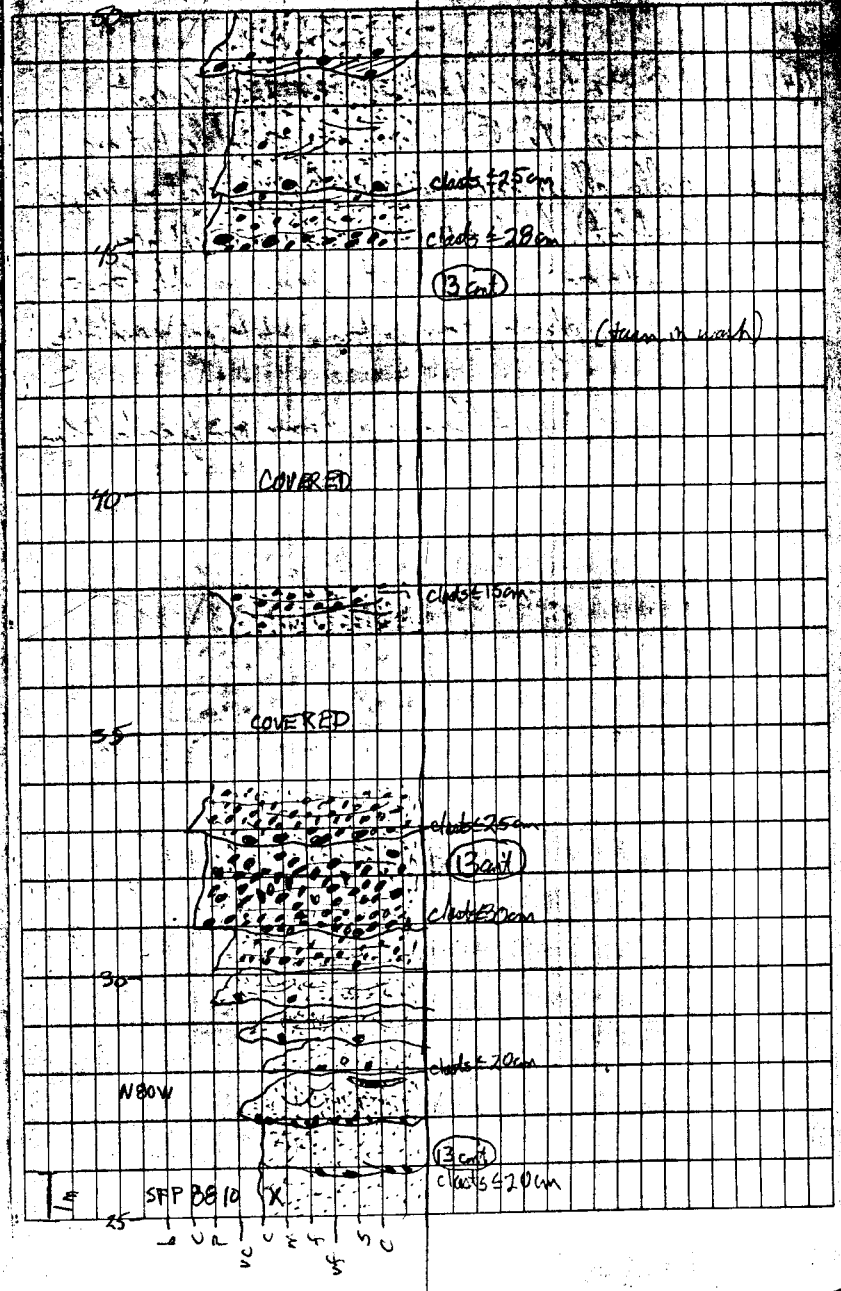 50
clasts ≤25cm
clasts ≤28cm
45
13 cont
(turn in wash)
COVERED
40
clasts ≤15cm
COVERED
35
clasts ≤25cm
13 cont
clasts ≤30cm
30
clasts ≤20cm
N80W
13 cont
clasts ≤20cm
1m
SFP 8810 X
25
b C P VC C M f vf S C